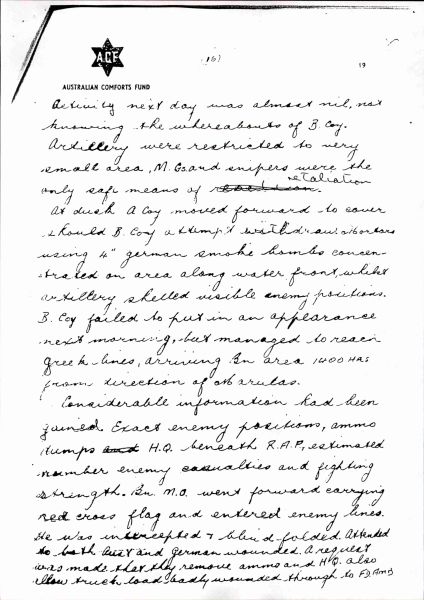 ACF
(6)
19
AUSTRALIAN COMFORTS FUND
Activity next day was almost nil, not
knowing the whereabouts of B. Coy.
Artillery were restricted to very
small area, M. Gs and snipers were the
only safe means of retaliation.
At dusk A Coy moved forward to cover
should B. Coy attempt withdraw. Mortars
using 4" german smoke bombs concen-
trated on area along water front, whilst
artillery shelled visible enemy positions.
B. Coy failed to put in an appearance
next morning, but managed to reach
Greek lines, arriving Bn area 1400 Hrs
from direction of Marulas.
Considerable information had been
gained. Exact enemy positions, ammo
dumps and H.Q. beneath R.A.P., estimated
number enemy casualties and fighting
strength. Bn. M.O. went forward carrying
red cross flag and entered enemy lines.
He was intercepted & blindfolded. Attended
to both Aust and german wounded. A request
was made that they remove ammo and H.Q. also
allow truck load badly wounded through to Fd Amb